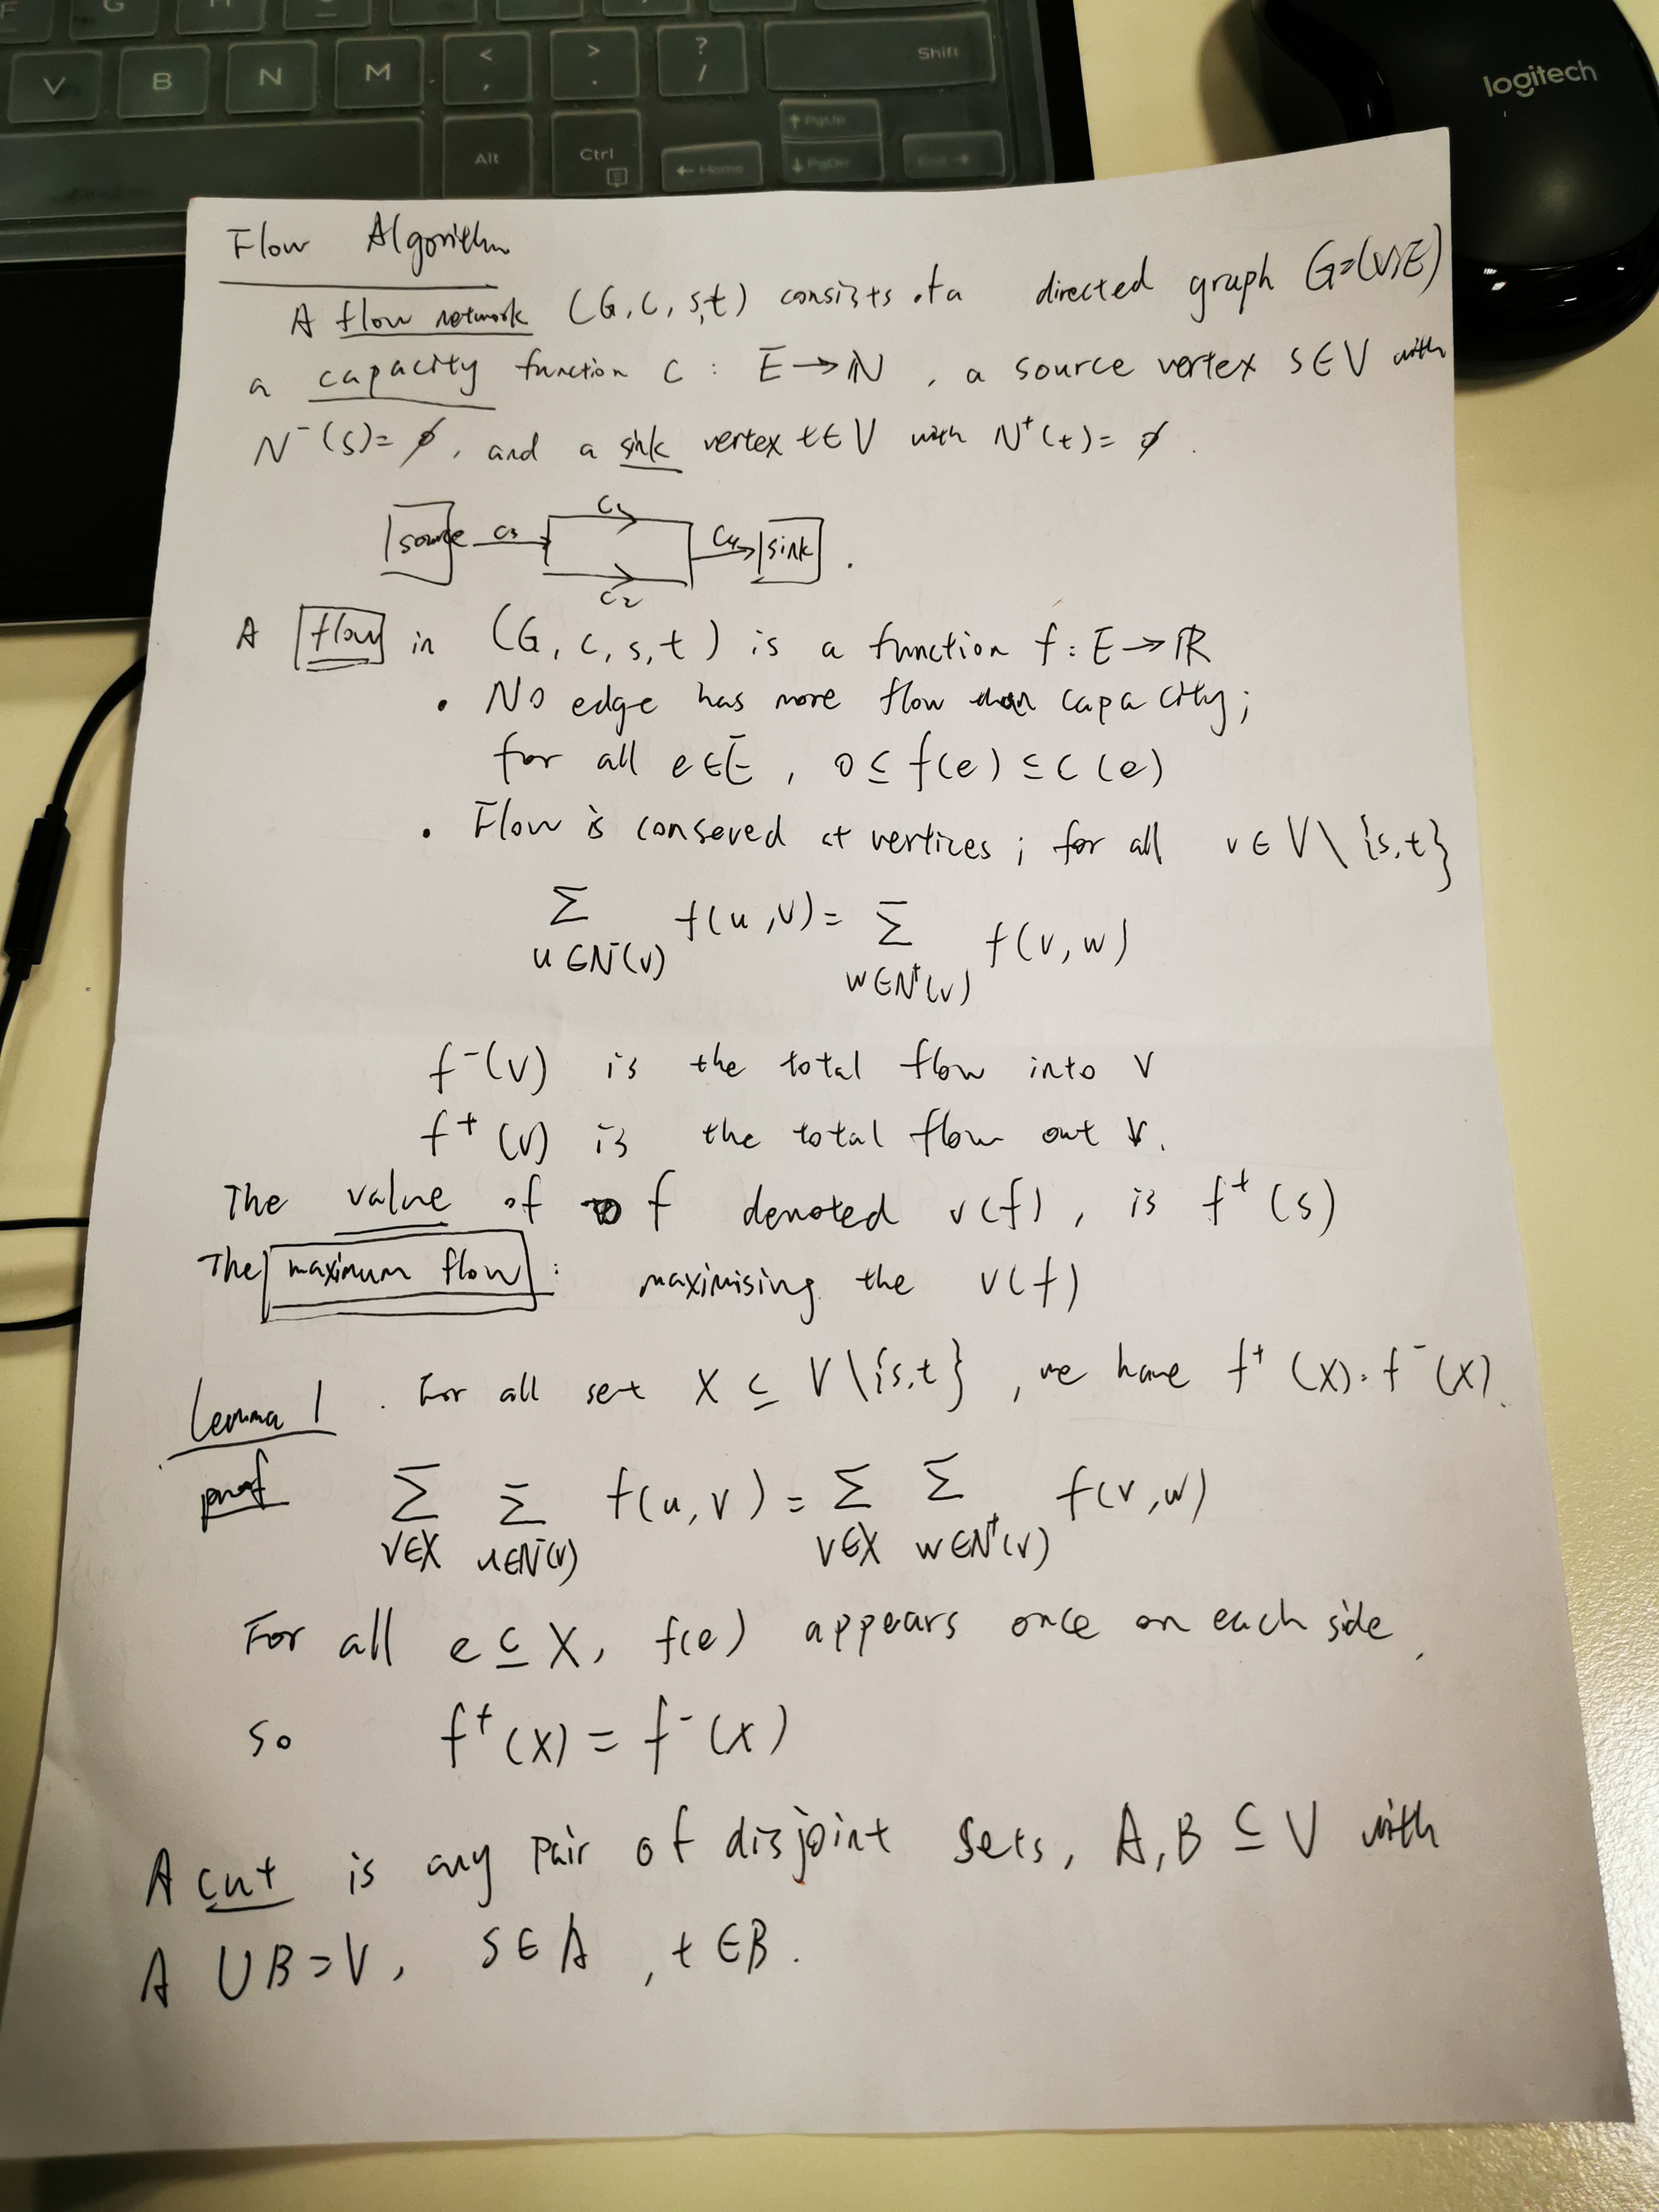 V B N M < , > . ? / Shift
Alt Ctrl ← Home ↑ PgUp ↓ PgDn End →
logitech
Flow Algorithm
A flow network (G, C, s, t) consists of a directed graph G=(V,E)
a capacity function C : E→ℕ , a source vertex s∈V with
N⁻(s)=∅, and a sink vertex t∈V with N⁺(t)=∅.
source C3 C1 C2 C4 sink .
A flow in (G, C, s, t) is a function f: E→ℝ
• No edge has more flow than capacity;
for all e∈E , 0≤f(e)≤C(e)
• Flow is conseved at vertices ; for all v∈V\{s,t}
∑ f(u,v)= ∑ f(v,w)
u∈N⁻(v) w∈N⁺(v)
f⁻(v) is the total flow into v
f⁺(v) is the total flow out v.
The value of f denoted v(f), is f⁺(s)
The maximum flow : maximising the v(f)
Lemma 1 . For all set X ⊆ V\{s,t} , we have f⁺(X)=f⁻(X).
proof ∑ ∑ f(u,v)= ∑ ∑ f(v,w)
v∈X u∈N⁻(v) v∈X w∈N⁺(v)
For all e⊆X, f(e) appears once on each side,
so f⁺(X) = f⁻(X)
A cut is any pair of disjoint sets, A,B ⊆ V with
A∪B=V, s∈A , t∈B.